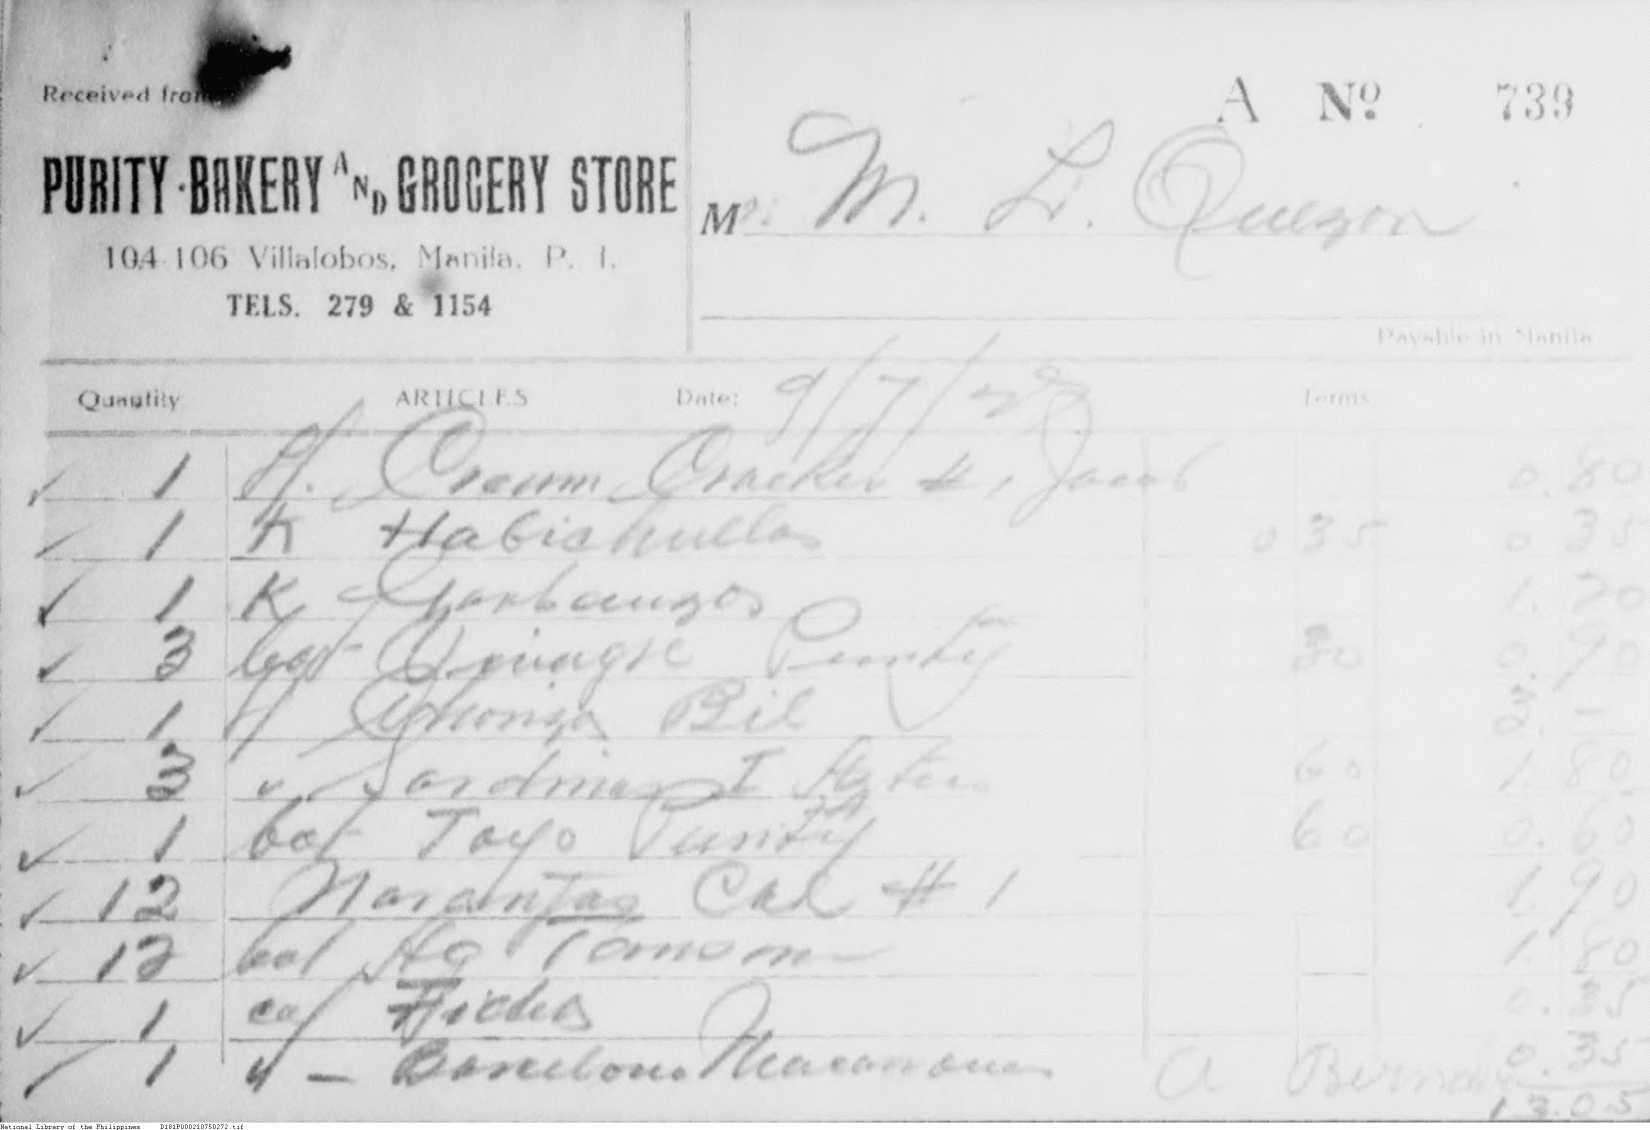 Received from
PURITY-BAKERY AND GROCERY STORE
104-106 Villalobos, Manila, P. I.
TELS. 279 & 1154
A Nº 739
Mr. M. L. Quezon
Payable in Manila
Quantity ARTICLES Date: 9/7/28 Terms
1 Cream Cracker # 1 Jacob 0.80
1 K Habichuellas 0 35 0 35
1 K Garbanzos 1.20
3 bot Vinagre Purity 30 0.90
1 Bil 3.-
3 " Sardinas 60 1.80
1 bot Toyo Purity 60 0.60
12 Naranjas Cal # 1 1.90
12 bot Ag Tansan 1.80
1 Fideos 0.35
1 " - Barcelona Macarrones 0.35
A 13.05
National Library of the Philippines D181P000210750272.tif